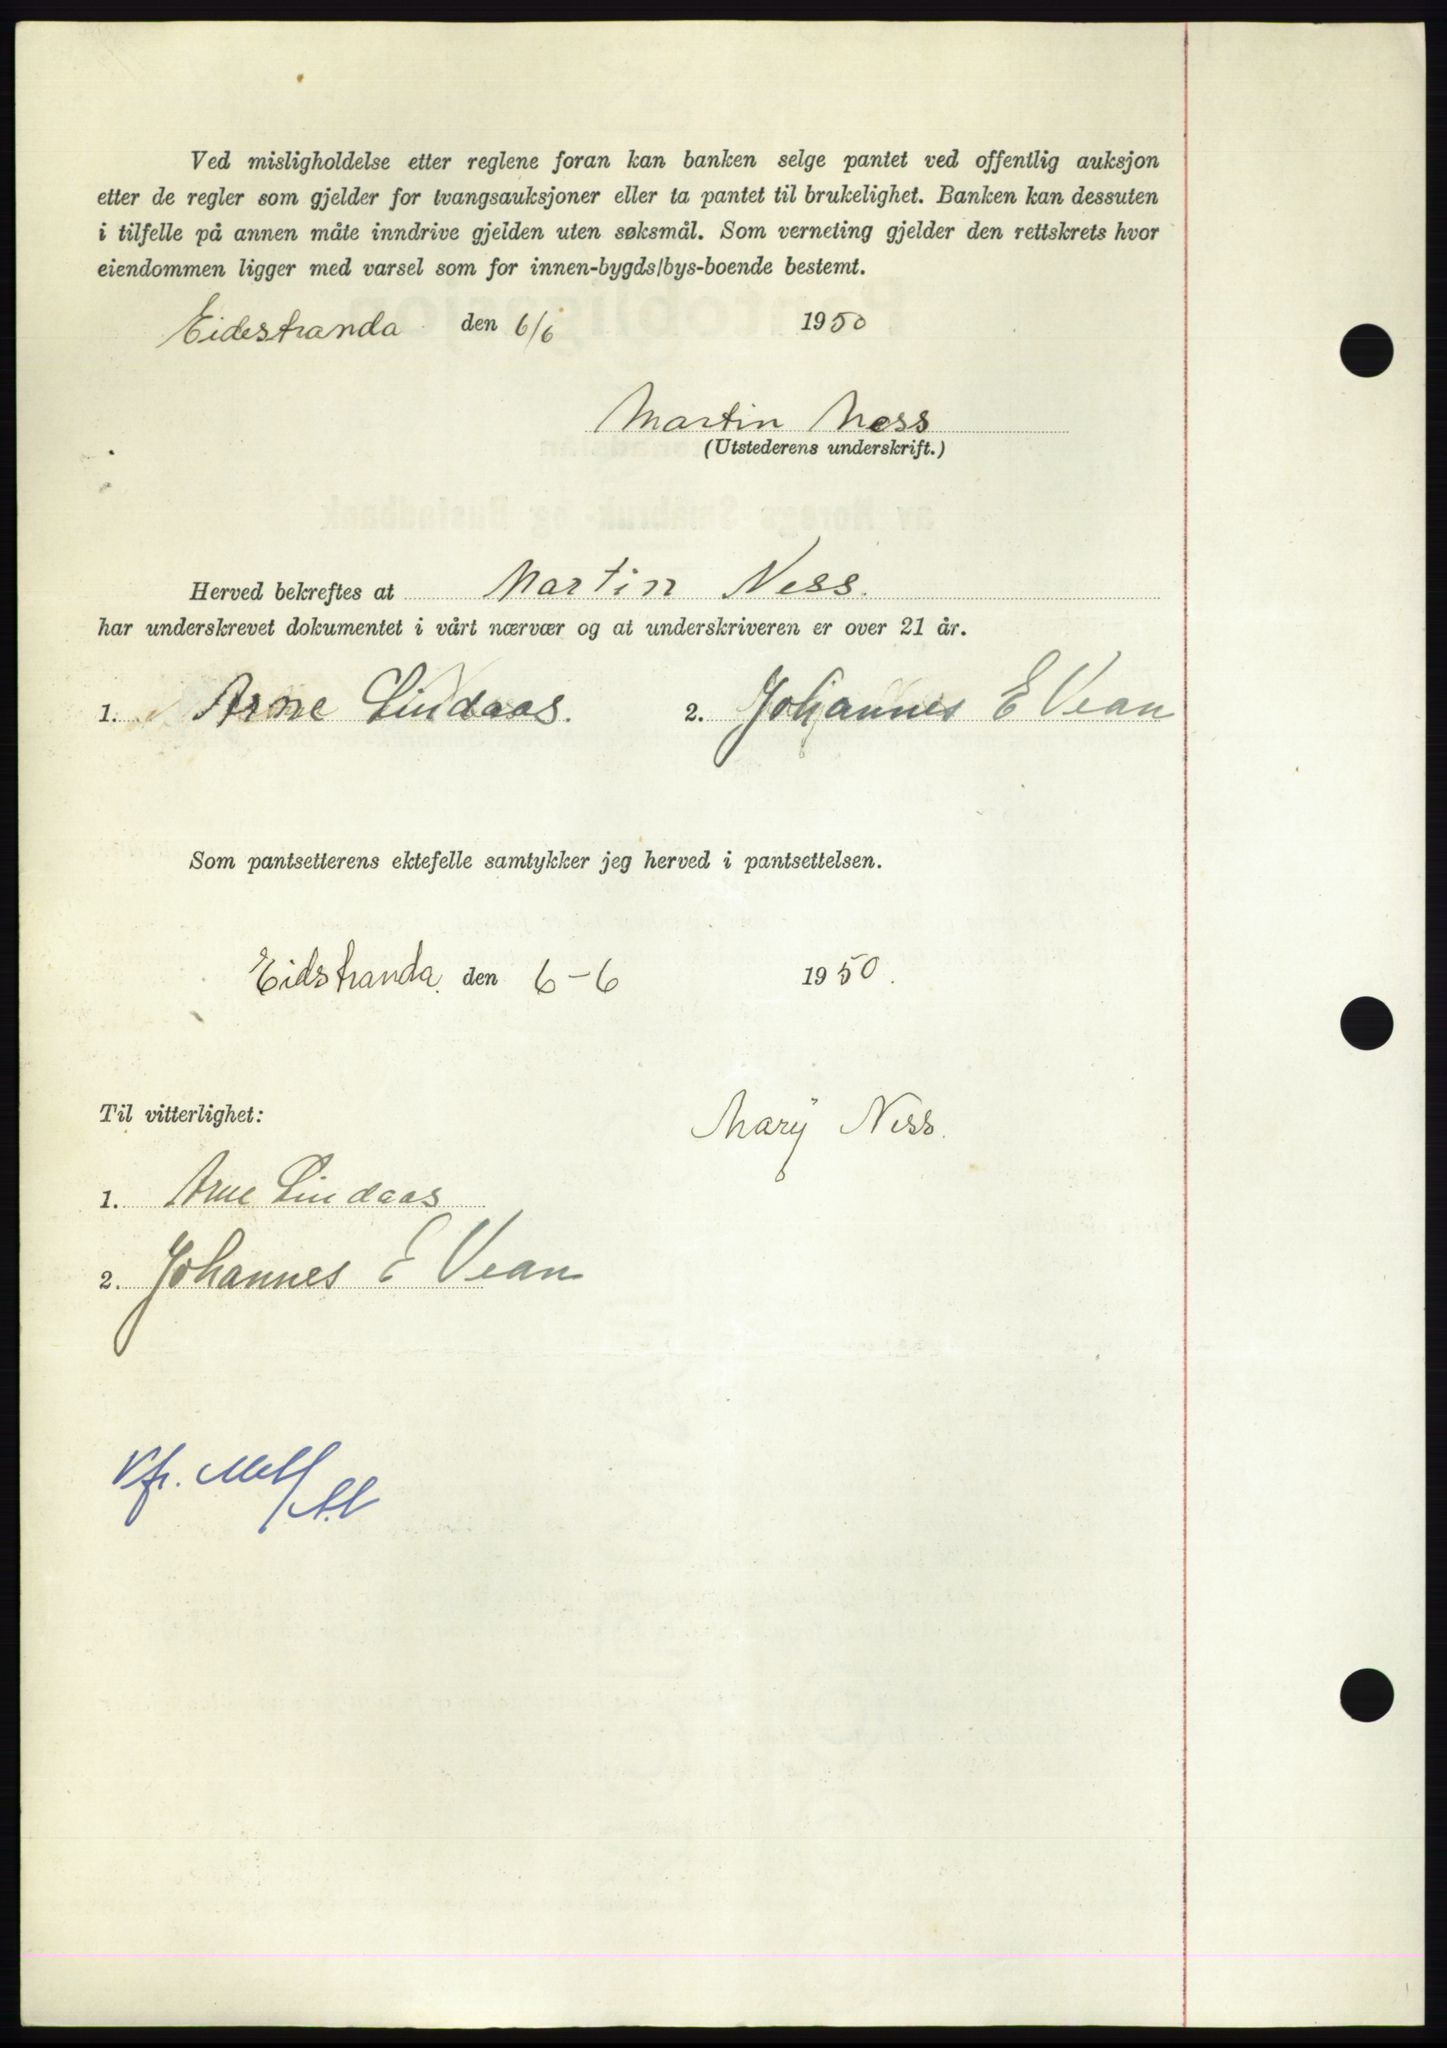 Ved misligholdelse etter reglene foran kan banken selge pantet ved offentlig auksjon
etter de regler som gjelder for tvangsauksjoner eller ta pantet til brukelighet. Banken kan dessuten
i tilfelle på annen måte inndrive gjelden uten søksmål. Som verneting gjelder den rettskrets hvor
eiendommen ligger med varsel som for innen-bygds/bys-boende bestemt.
Eidestranda den 6/6 1950
Martin Ness
(Utstederens underskrift.)
Herved bekreftes at Martin Ness.
har underskrevet dokumentet i vårt nærvær og at underskriveren er over 21 år.
1. Arne Lindaas. 2. Johannes E Vean
Som pantsetterens ektefelle samtykker jeg herved i pantsettelsen.
Eidstranda. den 6-6 1950.
Til vitterlighet:
Mary Ness.
1. Arne Lindaas
2. Johannes E Vean